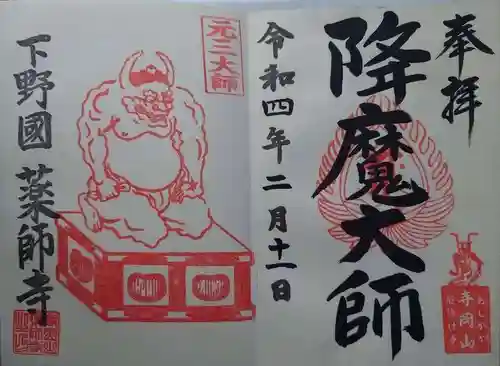 奉拝
降魔大師
令和四年二月十一日
寺岡山
元三大師
下野國 薬師寺